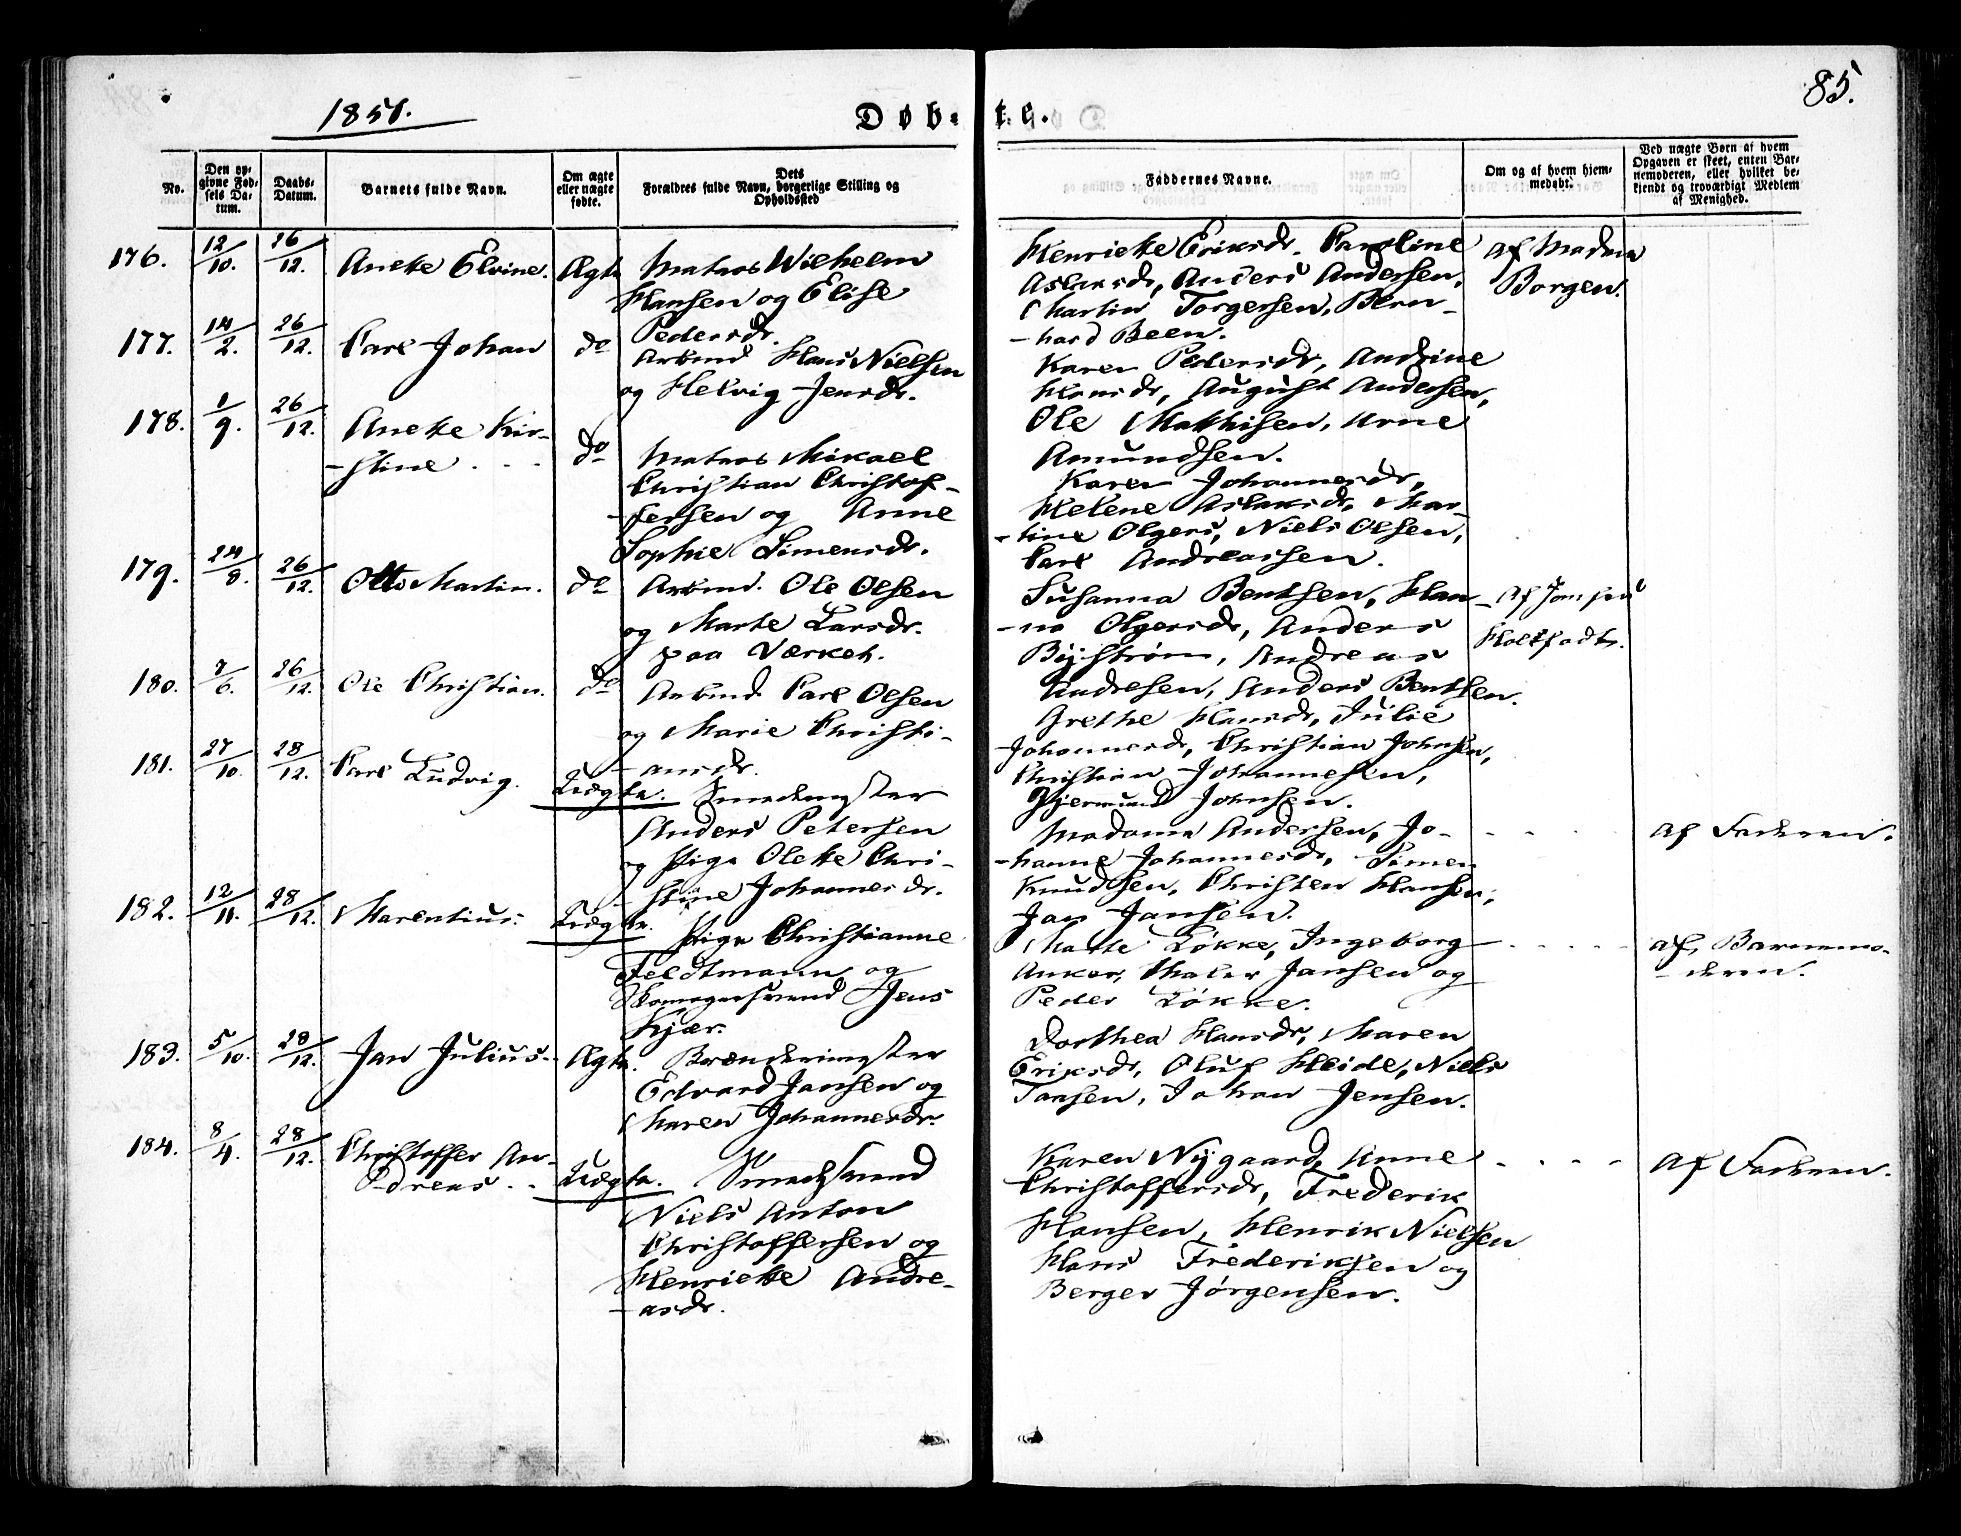 1851.
Døbte.
85.
No.
Den opgivne Fødsels Datum.
Daabs-Datum.
Barnets fulde Navn.
Om ægte eller uægte fødte.
Dets Forældres fulde Navn, borgerlige Stilling og Opholdssted
Faddernes Navne.
Om og af hvem hjemmedøbt.
Ved uægte Børn af hvem Opgaven er skeet, enten Barnemoderen, eller hvilket bekjendt og troværdigt Medlem af Menighed.
176. 12/10. 26/12. Anette Elvine. Ægte Matros Wilhelm
Hansen og Elise
Pedersdr.
Henriette Eriksdr. Caroline
Aslaksdr, Anders Andersen,
Martin Torgersen, Bern-
-hard Been.
Af Madam
Borgen.
177. 14/2. 26/12. Carl Johan do Arbmd Hans Nielsen
og Helvig Jensdr.
Karen Pedersdr, Andrine
Hansdr, August Andersen,
Ole Mathisen, Arne
Amundsen.
178. 1/9. 26/12. Anette Kir-
-stine do Matros Mikael
Christian Christof-
-fersen og Anne
Sophie Simensdr.
Karen Johannesdr,
Helene Aslaksdr, Mar-
-tine Olgers, Niels Olsen,
Carl Andreassen.
179. 24/8. 26/12. Otto Martin. do Arbmd. Ole Olsen
og Marte Larsdr.
paa Værket.
Susanna Bentsen, Han-
-na Olgersdr, Anders
Bijstrøm, Andreas
Andresen, Anders Bentsen.
Af
Holtfodt.
180. 7/6. 26/12. Ole Christian. do Arbmd Carl Olsen
og Marie Christi-
-ansdr.
Grethe Hansdr, Julie
Johannesdr, Christian Johnsen,
Christian Johannesen,
Gjermund Johnsen.
181. 27/10. 28/12. Carl Ludvig. Uægte. Smedmester
Anders Petersen
og Pige Olette Chri-
-stine Johannesdr.
Madame Andersen, Jo-
-hanne Johannesdr, Simen
Knudsen, Christen Hansen,
Jan Jansen.
af Faderen.
182. 12/11. 28/12. Marentius. Uægte. Pige Christianne
Feldtmann og
Skomagersvend Jens
Kjær.
Marte Løkke, Ingeborg
Anker, Maler Jansen og
Peder Løkke.
af Barnemo-
-deren.
183. 5/10. 28/12. Jan Julius. Ægte. Brændemester
Edvard Jansen og
Maren Johannesdr.
Dorthea Hansdr, Maren
Eriksdr, Oluf Heide, Niels
Jansen, Johan Jensen.
184. 8/4. 28/12. Christoffer An-
-dreas Uægte. Smedsvend
Niels Anton
Christoffersen og
Henriette Andre-
-asdr.
Karen Nygaard, Anne
Christoffersdr, Frederik
Hansen, Henrik Nielsen
Hans Frederiksen og
Berger Jørgensen.
Af Faderen.